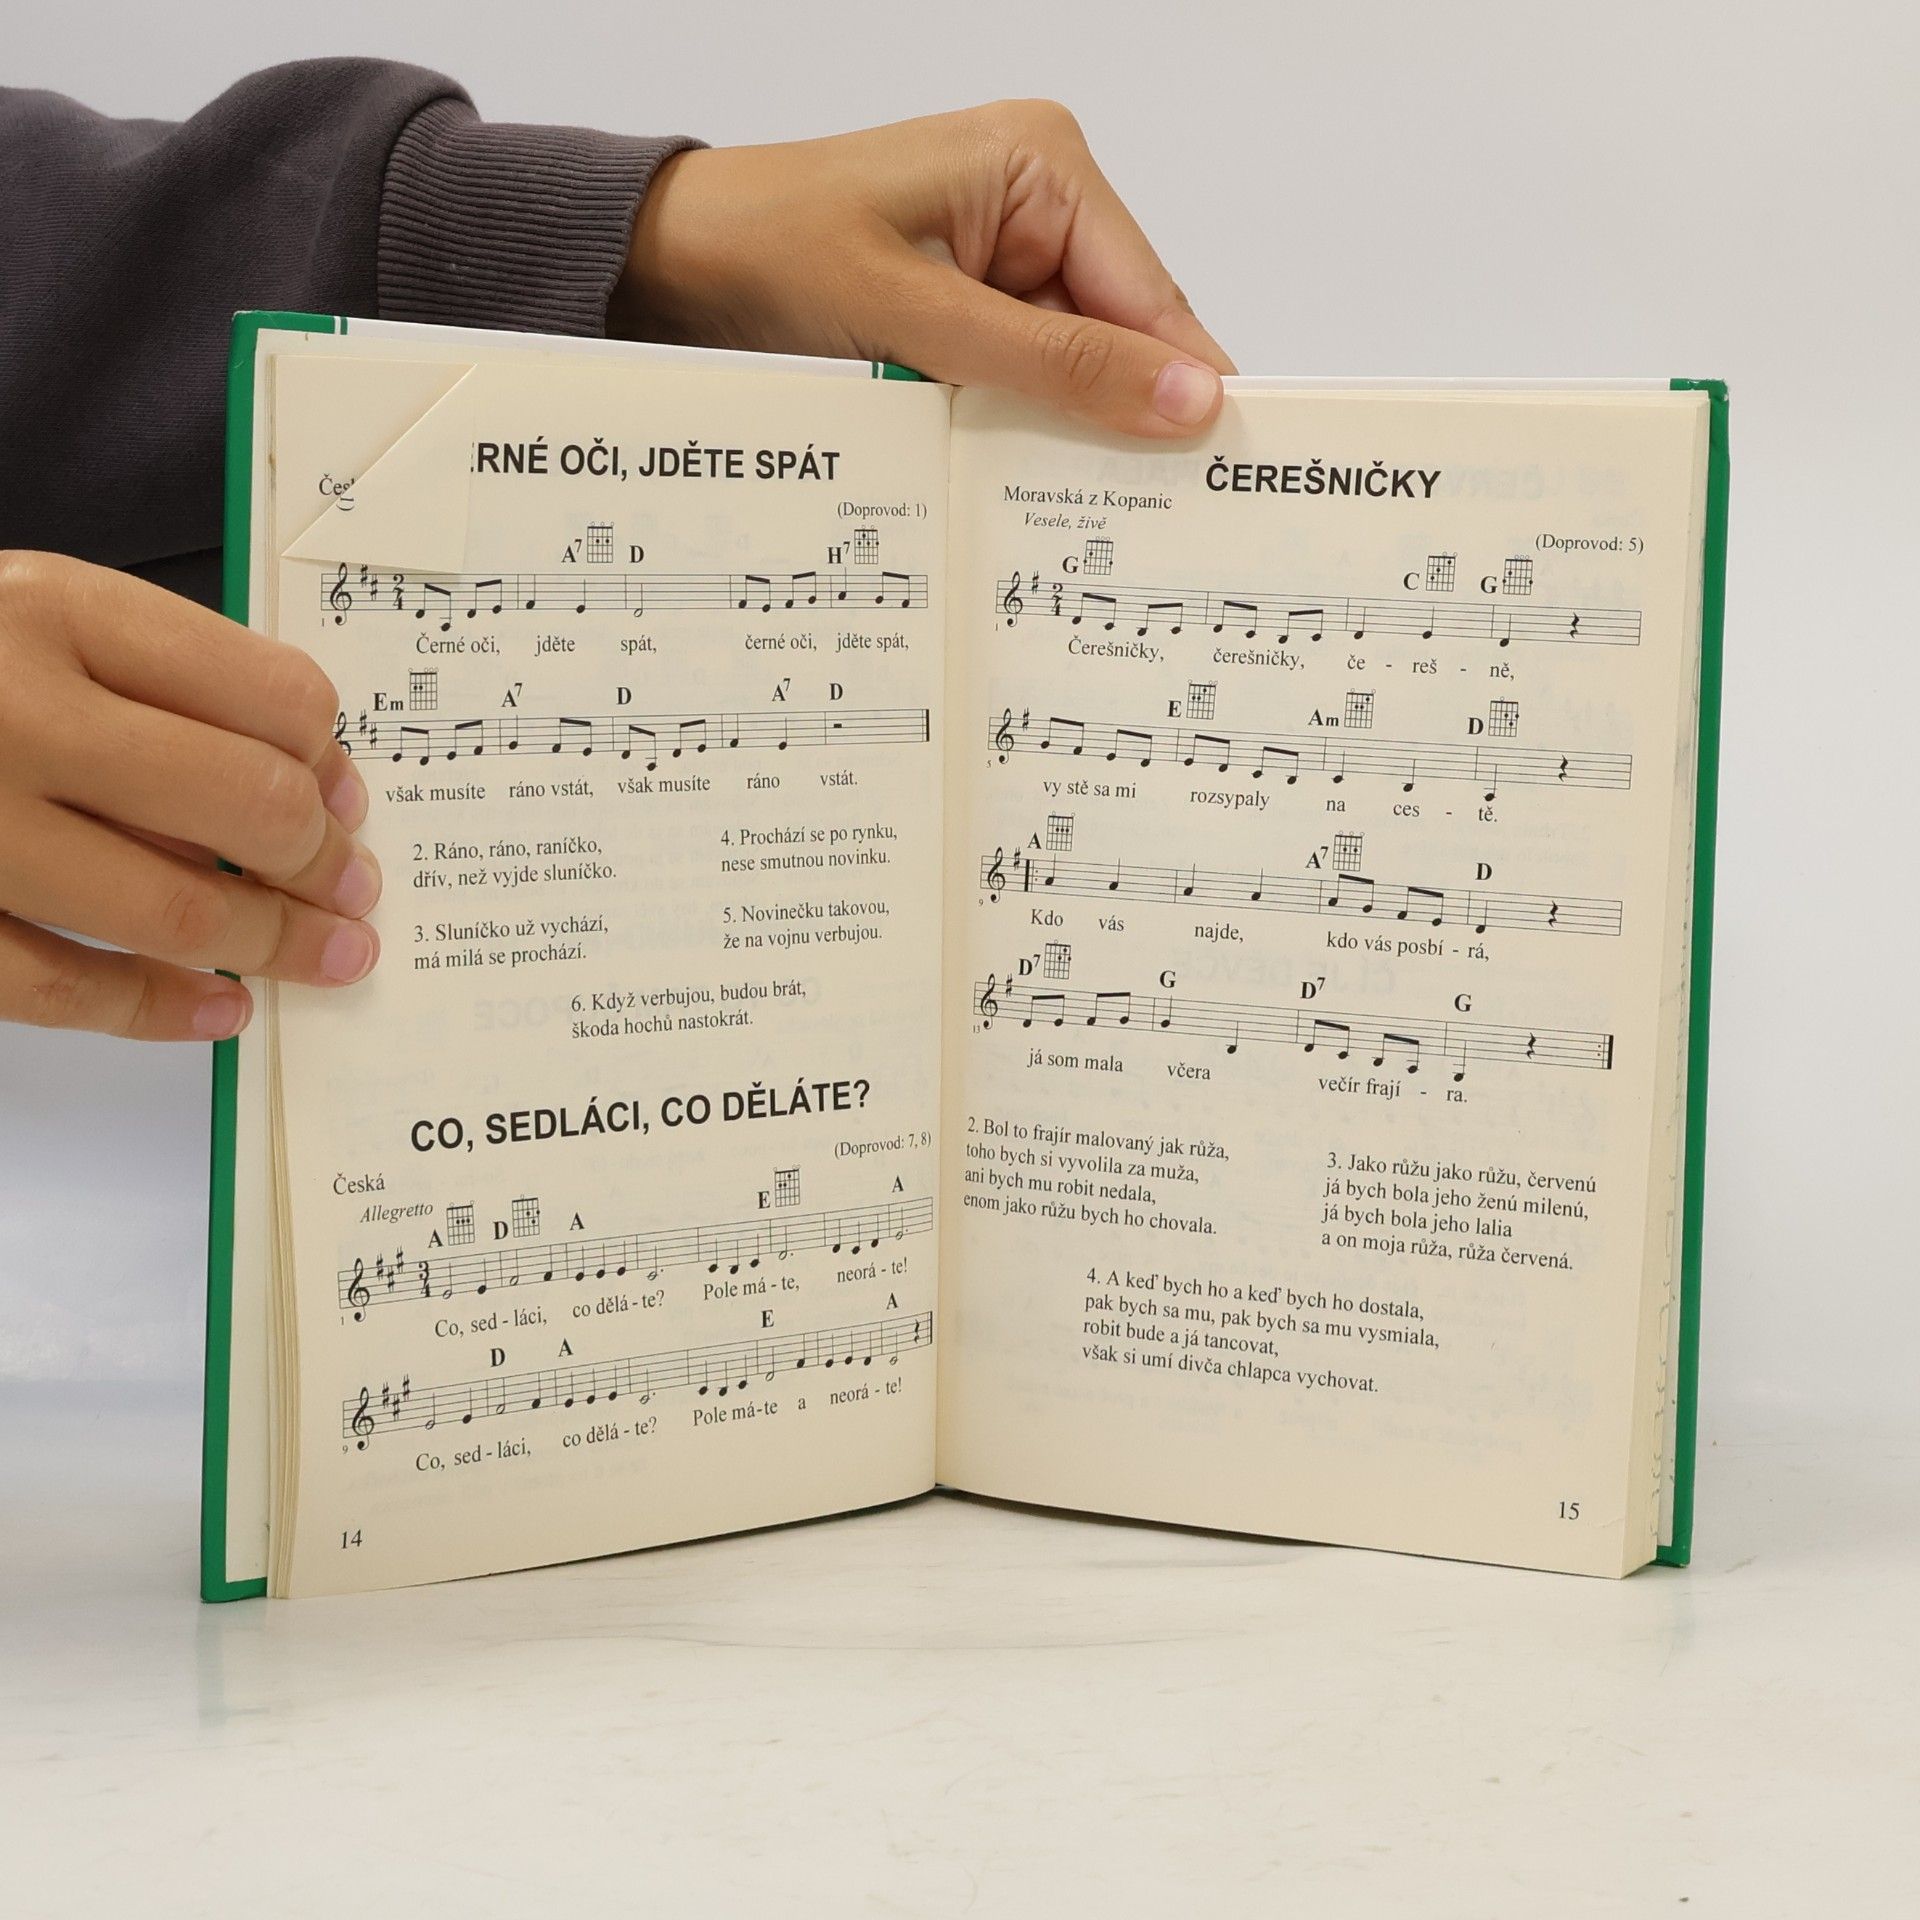 ERNÉ OČI, JDĚTE SPÁT
(Doprovod: 1)
A7 D H7
Černé oči, jděte spát, černé oči, jděte spát,
Em A7 D A7 D
však musíte ráno vstát, však musíte ráno vstát.
2. Ráno, ráno, raníčko,
dřív, než vyjde sluníčko.
3. Sluníčko už vychází,
má milá se prochází.
4. Prochází se po rynku,
nese smutnou novinku.
5. Novinečku takovou,
že na vojnu verbujou.
6. Když verbujou, budou brát,
škoda hochů nastokrát.
CO, SEDLÁCI, CO DĚLÁTE?
(Doprovod: 7, 8)
Česká
Allegretto
A D A E A
3
4
1
Co, sed - láci, co dělá - te? Pole má - te, neorá - te!
D A E A
9
Co, sed - láci, co dělá - te? Pole má-te a neorá - te!
14
ČEREŠNIČKY
Moravská z Kopanic
Vesele, živě
(Doprovod: 5)
G C G
2
4
1
Čerešničky, čerešničky, če - reš - ně,
E Am D
5
vy stě sa mi rozsypaly na ces - tě.
A A7 D
9
Kdo vás najde, kdo vás posbí - rá,
D7 G D7 G
13
já som mala včera večír frají - ra.
2. Bol to frajír malovaný jak růža,
toho bych si vyvolila za muža,
ani bych mu robit nedala,
enom jako růžu bych ho chovala.
3. Jako růžu jako růžu, červenú
já bych bola jeho ženú milenú,
já bych bola jeho lalia
a on moja růža, růža červená.
4. A keď bych ho a keď bych ho dostala,
pak bych sa mu, pak bych sa mu vysmiala,
robit bude a já tancovat,
však si umí divča chlapca vychovat.
15